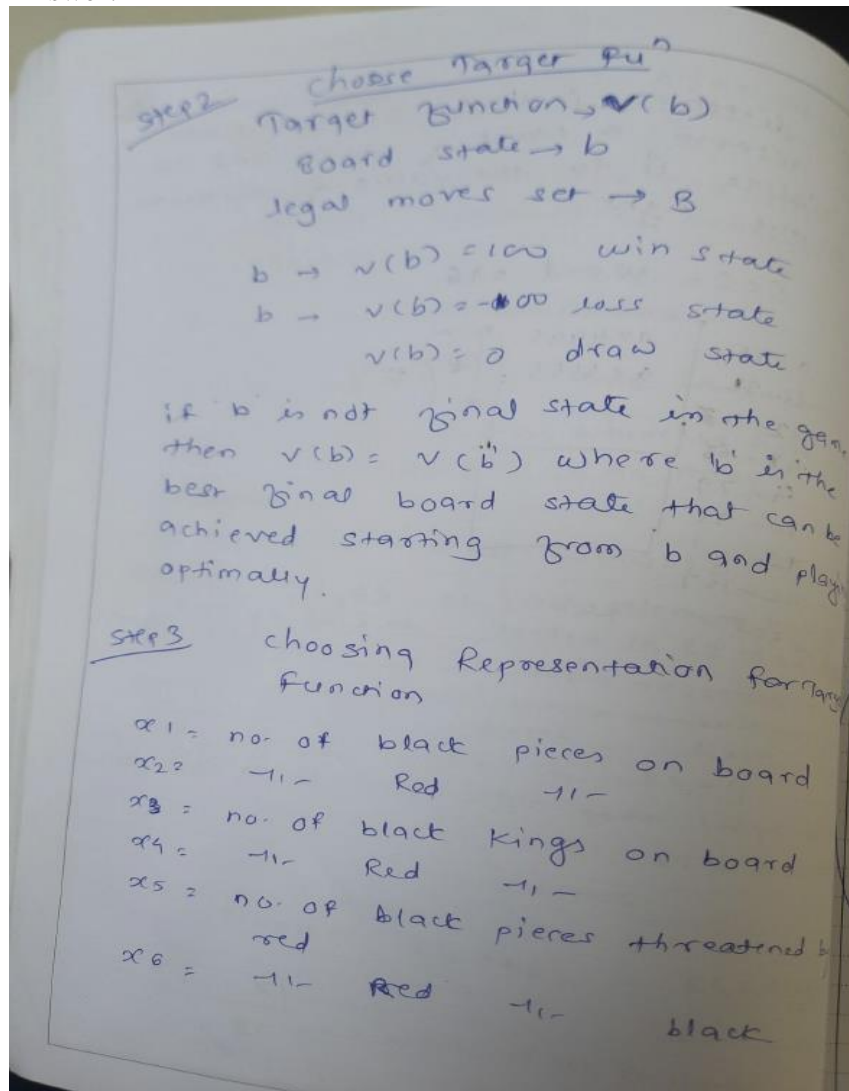 choose Target Fuⁿ
step 2
Target function → V(b)
Board state → b
legal moves set → B
b → v(b) = 100 win state
b → v(b) = -100 loss state
v(b) = 0 draw state
if b is not final state in the
then v(b) = v(b') where b' is the
best final board state that can be
achieved starting from b and
optimally.
step 3 choosing Representation for
Function
x1 = no. of black pieces on board
x2 = -11- Red -11-
x3 = no. of black Kings on board
x4 = -11- Red -11-
x5 = no. of black pieces threatened
red
x6 = -11- Red -11- black